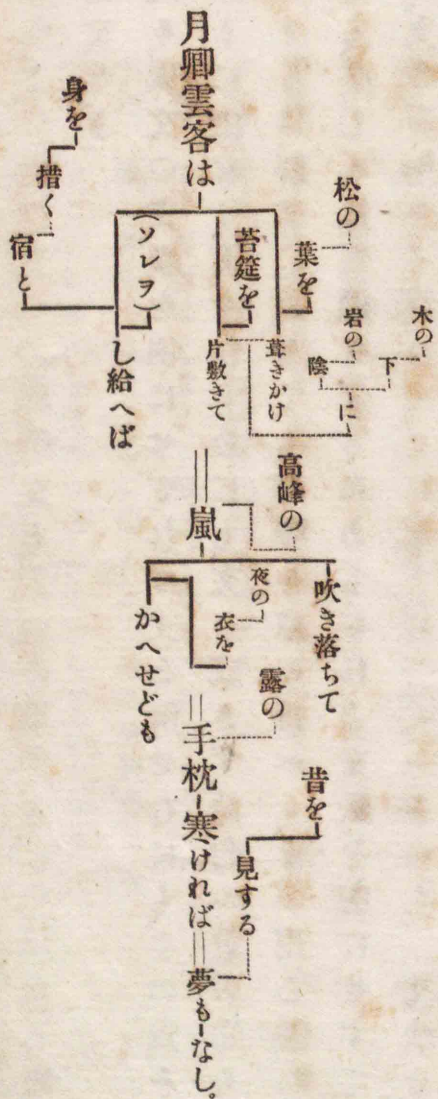 月卿雲客は
木の
下
岩の
陰
に
松の
葉を
葺きかけ
苔筵を
片敷きて
(ソレヲ)
身を
措く
宿と
し給へば
高峰の
嵐
吹き落ちて
夜の
衣を
かへせども
露の
手枕
寒ければ
昔を
見する
夢も
なし。